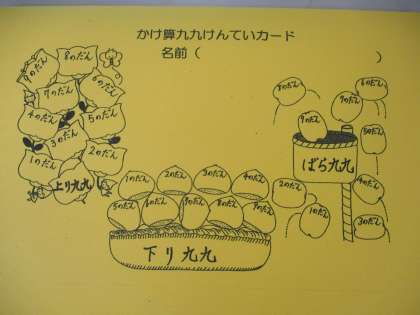 かけ算九九けんていカード
名前（　　　　　　）
9のだん
8のだん
7のだん
6のだん
4のだん
5のだん
3のだん
1のだん
2のだん
上り九九
1のだん
2のだん
3のだん
4のだん
5のだん
6のだん
9のだん
8のだん
7のだん
下り九九
8のだん
6のだん
7のだん
9のだん
5のだん
ばら九九
2のだん
4のだん
1のだん
3のだん